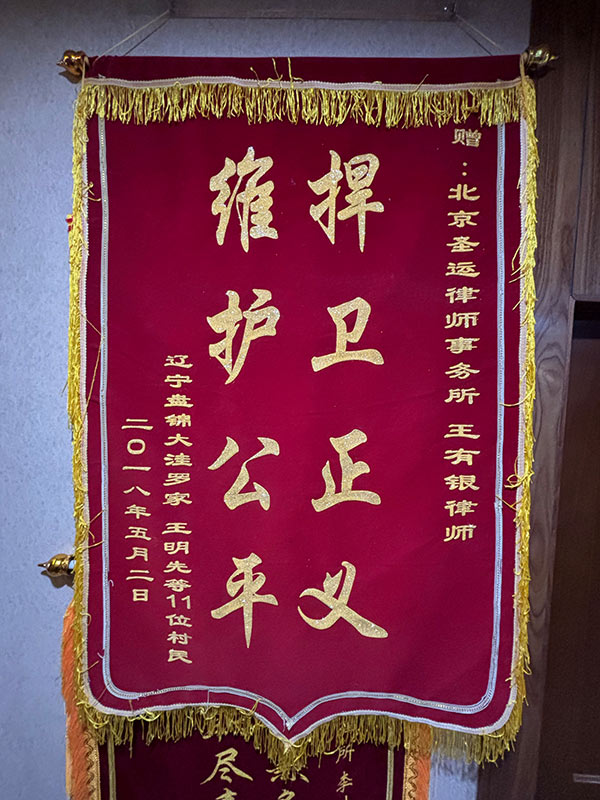 赠：北京圣运律师事务所 王有银律师
捍卫正义
维护公平
辽宁盘锦大洼罗家 王明先等11位村民
二〇一八年五月二日
所 李
尽